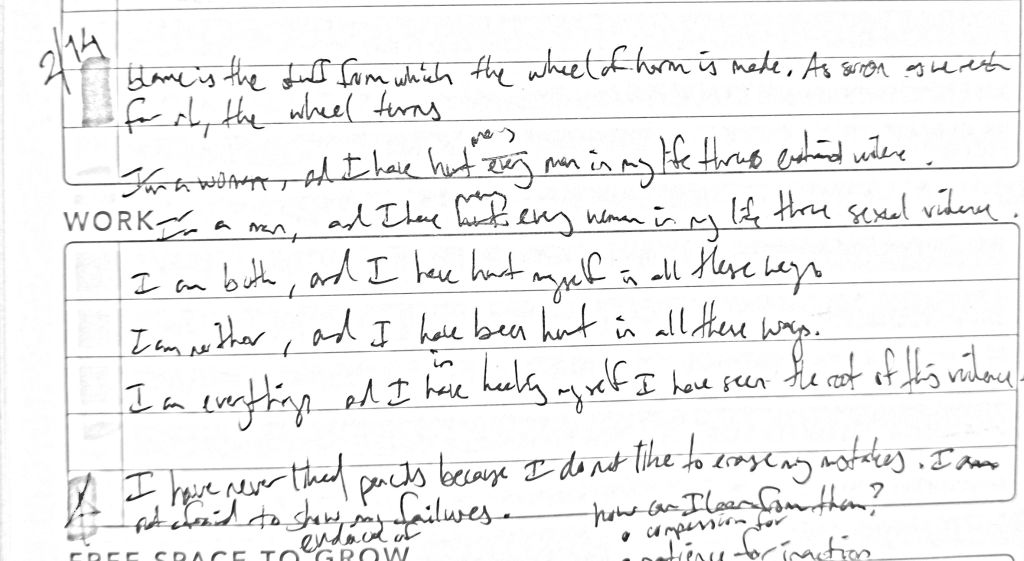 2/14
blame is the stuff from which the wheel of harm is made. As soon as we reach
for it, the wheel turns
many
I'm a woman, and I have hurt every man in my life through emotional violence.
many
WORK I'm a man, and I have hurt every woman in my life through sexual violence.
I am both, and I have hurt myself in all these ways
I am neither, and I have been hurt in all these ways.
in
I am everything and I have healing myself I have seen the root of this violence.
I have never liked pencils because I do not like to erase my mistakes. I am
not afraid to show my failures. how can I learn from them?
evidence of • compassion for
FREE SPACE TO GROW • patience for inaction